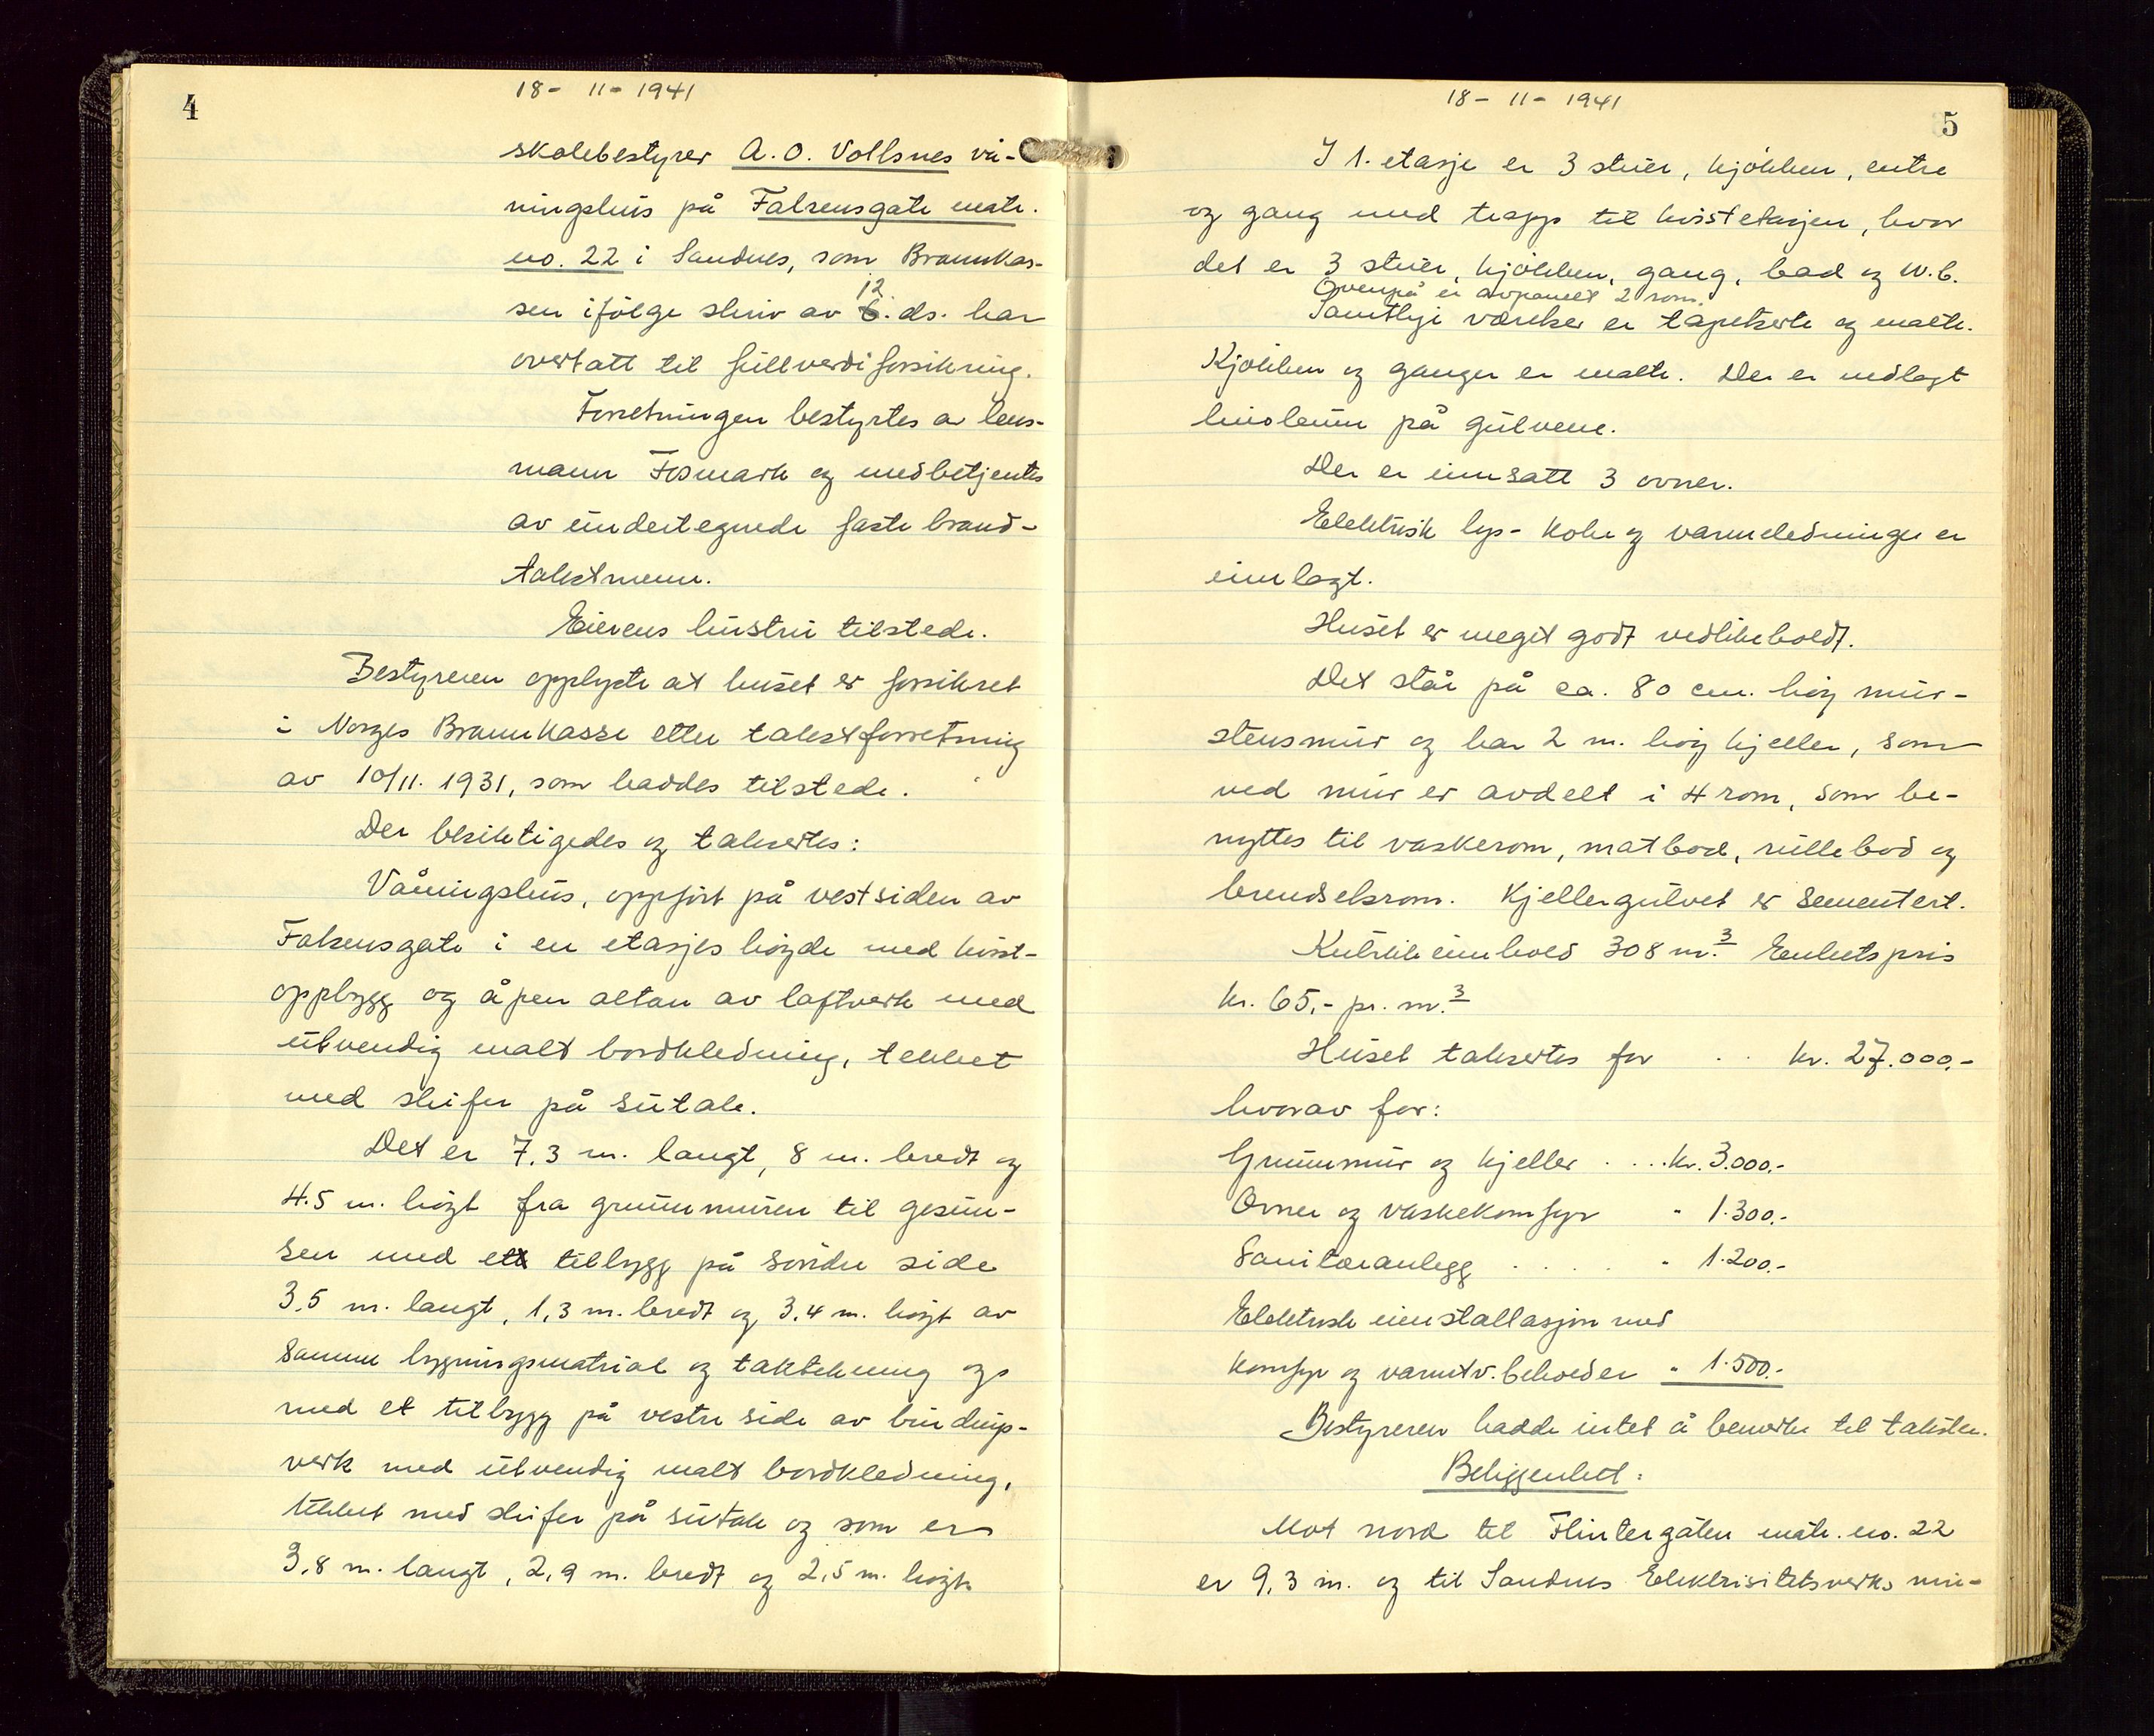 4
18- 11- 1941
skolebestyrer A. O. Vollsnes vå-
ningshus på Falsensgate matr.
no. 22 i Sandnes, som Brannkas-
12.
sen ifölge skriv av 6. ds. har
overtatt til fullverdiforsikring.
Forretningen bestyrtes av lens-
mann Fosmark og medbetjentes
av undertegnede faste brand-
takstmenn.
Eierens hustru tilstede.
Bestyreren opplyste at huset er forsikret
i Norges Brannkasse etter takstforretning
av 10/11. 1931, som haddes tilstede.
Der besiktigedes og taksertes:
Våningshus, oppfört på vestsiden av
Falsensgate i en etasjes höyde med kvist-
oppbygg og åpen altan av laftverk med
utvendig malt bordkledning, tekket
med skifer på sutak.
Det er 7.3 m. langt, 8 m. bredt og
4.5 m. höyt fra grunnmuren til gesim-
sen med ett tilbygg på söndre side
3.5 m. langt, 1,3 m. bredt og 3.4 m. höyt av
samme bygningsmatrial og taktekning og
med et tilbygg på vestre side av bindings-
verk med utvendig malt bordkledning,
tekket med skifer på sutak og som er
3,8 m. langt, 2,9 m. bredt og 2,5 m. höyt.
18- 11- 1941
5
I 1. etasje er 3 stuer, kjökken, entre
og gang med trapp til kvistetasjen, hvor
det er 3 stuer, kjökken, gang, bad og W.C.
Ovenpå er avpanelt 2 rom.
Samtlige værelser er tapetserte og malte.
Kjökken og ganger er malte. Der er nedlagt
linoleum på gulvene.
Der er innsatt 3 ovner.
Elektrisk lys- koke og varmeledninger er
innlagt.
Huset er meget godt vedlikeholdt.
Det står på ca. 80 cm. höy mur-
stensmur og har 2 m. höy kjeller, som
ved mur er avdelt i 4 rom, som be-
nyttes til vaskerom, matbod, rullebod og
brendselsrom. Kjellergulvet er sementert.
Kubikkinnhold 308 m.3 Enhetspris
kr. 65,- pr. m.3
Huset taksertes for . . kr. 27.000,-
hvorav for:
Grunnmur og kjeller . . . . kr. 3.000.-
Ovner og vaskekomfyr " 1.300.-
Sanitæranlegg . . . . " 1.200.-
Elektrisk installasjon med
komfyr og varmtv. beholder " 1.500.-
Bestyreren hadde intet å bemerke til taksten.
Beliggenhet:
Mot nord til Flintergaten matr. no. 22
er 9,3 m. og til Sandnes Elektrisitetsverks mu-